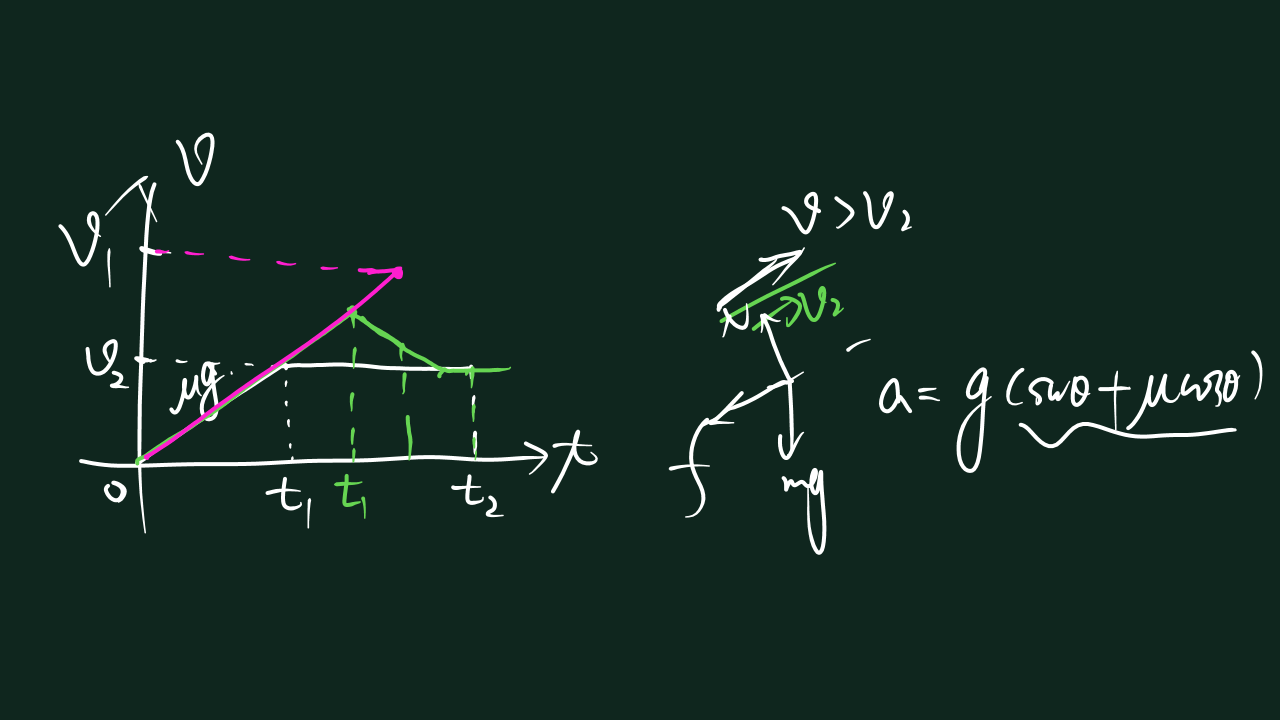 v
v₁
v₂
μg
0
t₁
t₁
t₂
t
v>v₂
N
v₂
a=g(sinθ+μcosθ)
f
mg